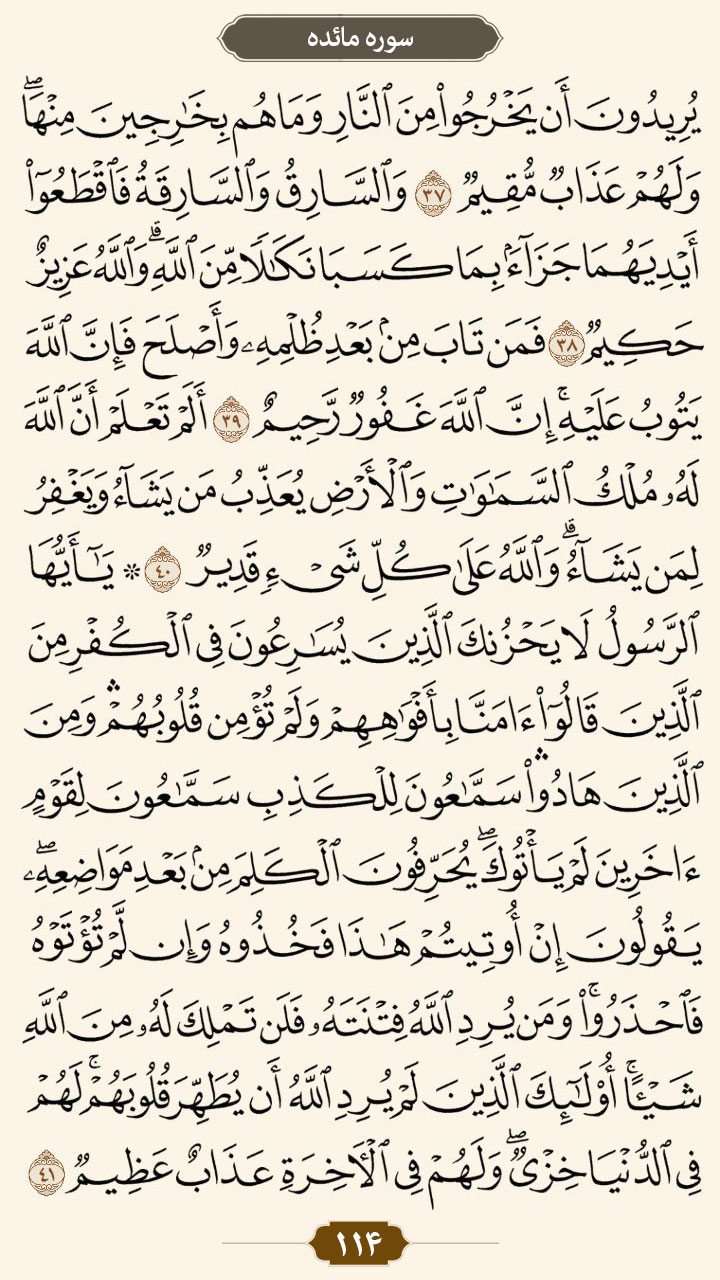 سوره مائده
يُرِيدُونَ أَن يَخْرُجُوا۟ مِنَ ٱلنَّارِ وَمَا هُم بِخَـٰرِجِينَ مِنْهَا ۖ
وَلَهُمْ عَذَابٌ مُّقِيمٌ ٣٧ وَٱلسَّارِقُ وَٱلسَّارِقَةُ فَٱقْطَعُوٓا۟
أَيْدِيَهُمَا جَزَآءًۢ بِمَا كَسَبَا نَكَـٰلًا مِّنَ ٱللَّهِ ۗ وَٱللَّهُ عَزِيزٌ
حَكِيمٌ ٣٨ فَمَن تَابَ مِنۢ بَعْدِ ظُلْمِهِۦ وَأَصْلَحَ فَإِنَّ ٱللَّهَ
يَتُوبُ عَلَيْهِ ۚ إِنَّ ٱللَّهَ غَفُورٌ رَّحِيمٌ ٣٩ أَلَمْ تَعْلَمْ أَنَّ ٱللَّهَ
لَهُۥ مُلْكُ ٱلسَّمَـٰوَٰتِ وَٱلْأَرْضِ يُعَذِّبُ مَن يَشَآءُ وَيَغْفِرُ
لِمَن يَشَآءُ ۗ وَٱللَّهُ عَلَىٰ كُلِّ شَىْءٍ قَدِيرٌ ٤٠ * يَـٰٓأَيُّهَا
ٱلرَّسُولُ لَا يَحْزُنكَ ٱلَّذِينَ يُسَـٰرِعُونَ فِى ٱلْكُفْرِ مِنَ
ٱلَّذِينَ قَالُوٓا۟ ءَامَنَّا بِأَفْوَٰهِهِمْ وَلَمْ تُؤْمِن قُلُوبُهُمْ ۛ وَمِنَ
ٱلَّذِينَ هَادُوا۟ ۛ سَمَّـٰعُونَ لِلْكَذِبِ سَمَّـٰعُونَ لِقَوْمٍ
ءَاخَرِينَ لَمْ يَأْتُوكَ ۖ يُحَرِّفُونَ ٱلْكَلِمَ مِنۢ بَعْدِ مَوَاضِعِهِۦ ۖ
يَقُولُونَ إِنْ أُوتِيتُمْ هَـٰذَا فَخُذُوهُ وَإِن لَّمْ تُؤْتَوْهُ
فَٱحْذَرُوا۟ ۚ وَمَن يُرِدِ ٱللَّهُ فِتْنَتَهُۥ فَلَن تَمْلِكَ لَهُۥ مِنَ ٱللَّهِ
شَيْـًٔا ۚ أُو۟لَـٰٓئِكَ ٱلَّذِينَ لَمْ يُرِدِ ٱللَّهُ أَن يُطَهِّرَ قُلُوبَهُمْ ۚ لَهُمْ
فِى ٱلدُّنْيَا خِزْىٌ ۖ وَلَهُمْ فِى ٱلْـَٔاخِرَةِ عَذَابٌ عَظِيمٌ ٤١
۱۱۴